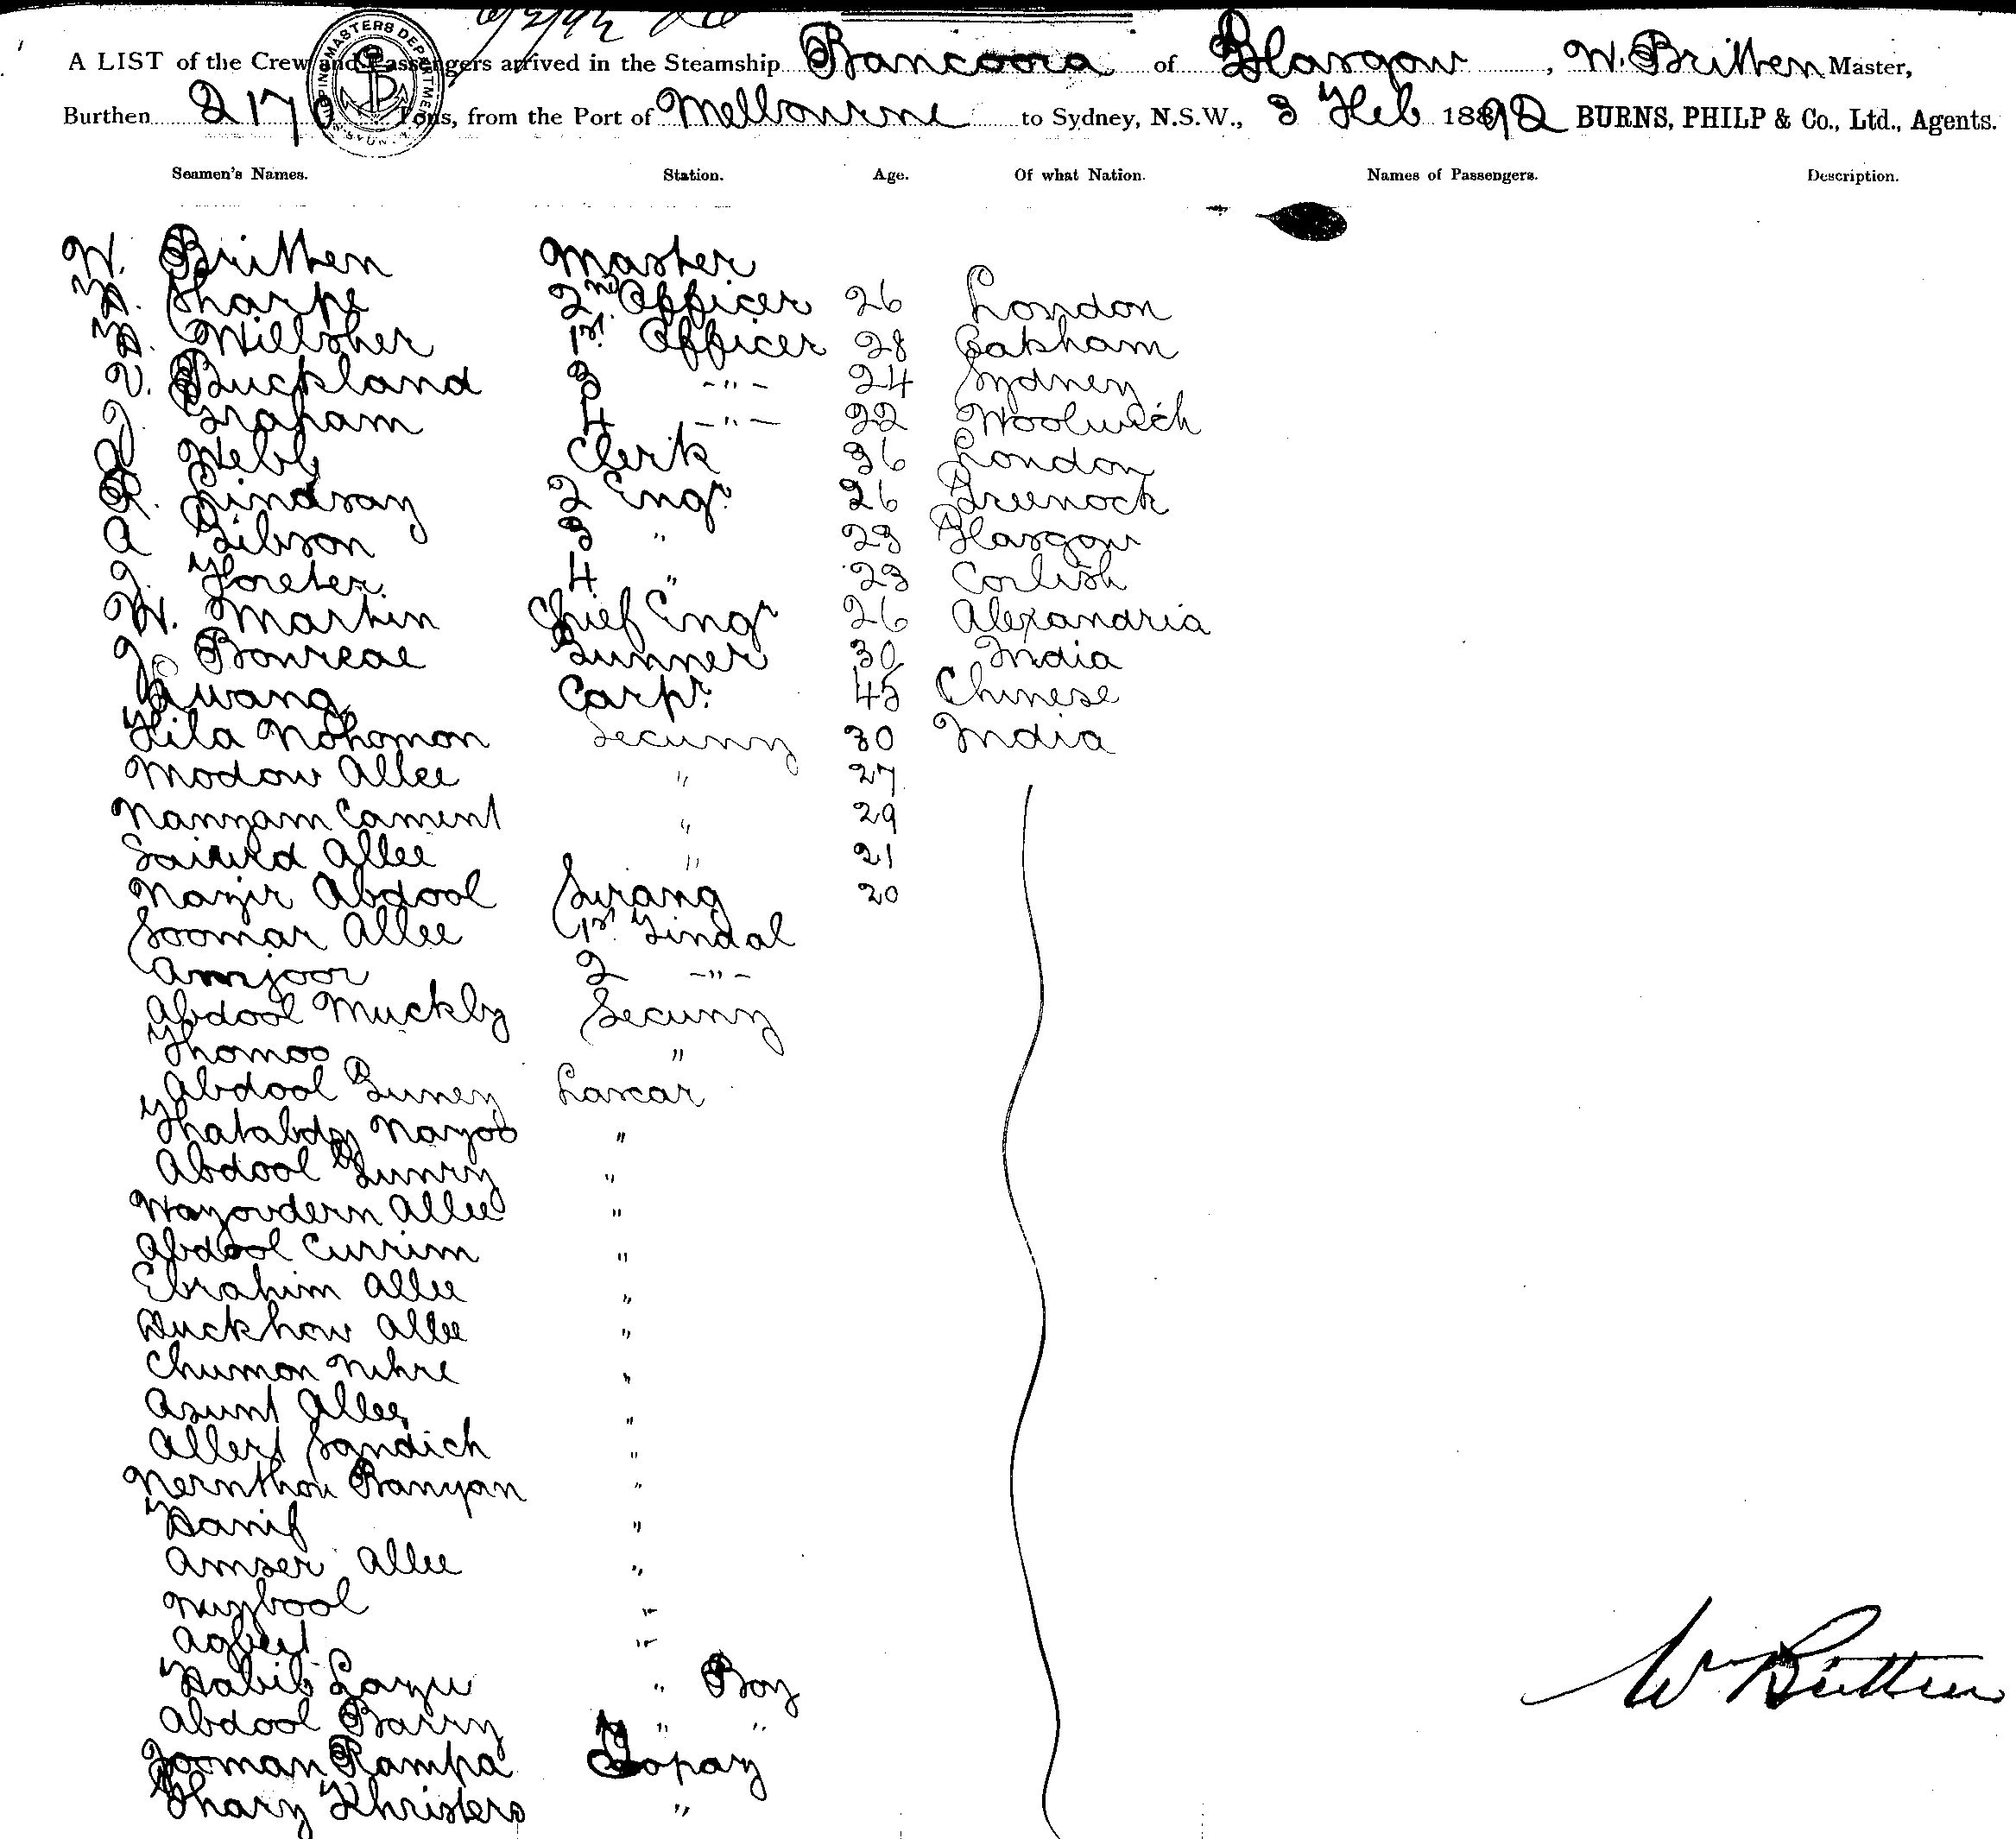 6/2/92
A LIST of the Crew and Passengers arrived in the Steamship Bancoora of Glasgow, W. Britten Master,
Burthen 2170 Tons, from the Port of Melbourne to Sydney, N.S.W., 3 Feb 1892 BURNS, PHILP & Co., Ltd., Agents.
SHIPPING MASTERS DEPARTMENT N.S.W.
Seamen's Names. Station. Age. Of what Nation. Names of Passengers. Description.
W. Britten Master
H. Sharpe 2nd Officer 26 London
H. Willsher 1st. Officer 28 Oakham
V. Buckland 3 -"- 24 Sydney
J. Graham 4 -"- 22 Woolwich
Webb Clerk 36 London
R. Lindsay 2 Engr. 26 Greenock
A Gibson 3 " 23 Glasgow
J. 4 " 23
W. Martin Chief Engr 26 Alexandria
J. Gunner 30 India
Awang Carpr. 45 Chinese
Fila Nohomon Secunny 30 India
Modow Allee " 27
Nanyam Cament " 29
Allee " 21
Nazir Abdool Serang 20
Soomar Allee 1st. Tindal
Amjoor 2 -"-
Abdool Muckby Secunny
Thomoo "
Abdool Guney Lascar
Nayoo "
Abdool Gunny "
Wayoudern Allee "
Abdool Currim "
Ebrahim Allee "
Buckhow Allee "
Chumon "
Asunt Allee "
Allert Sandich "
Banyan "
Hanif "
Amser Allee "
"
"
Habib " Boy
Abdool Barry " "
Jooman Rampa Topay
Khristero "
W Britten